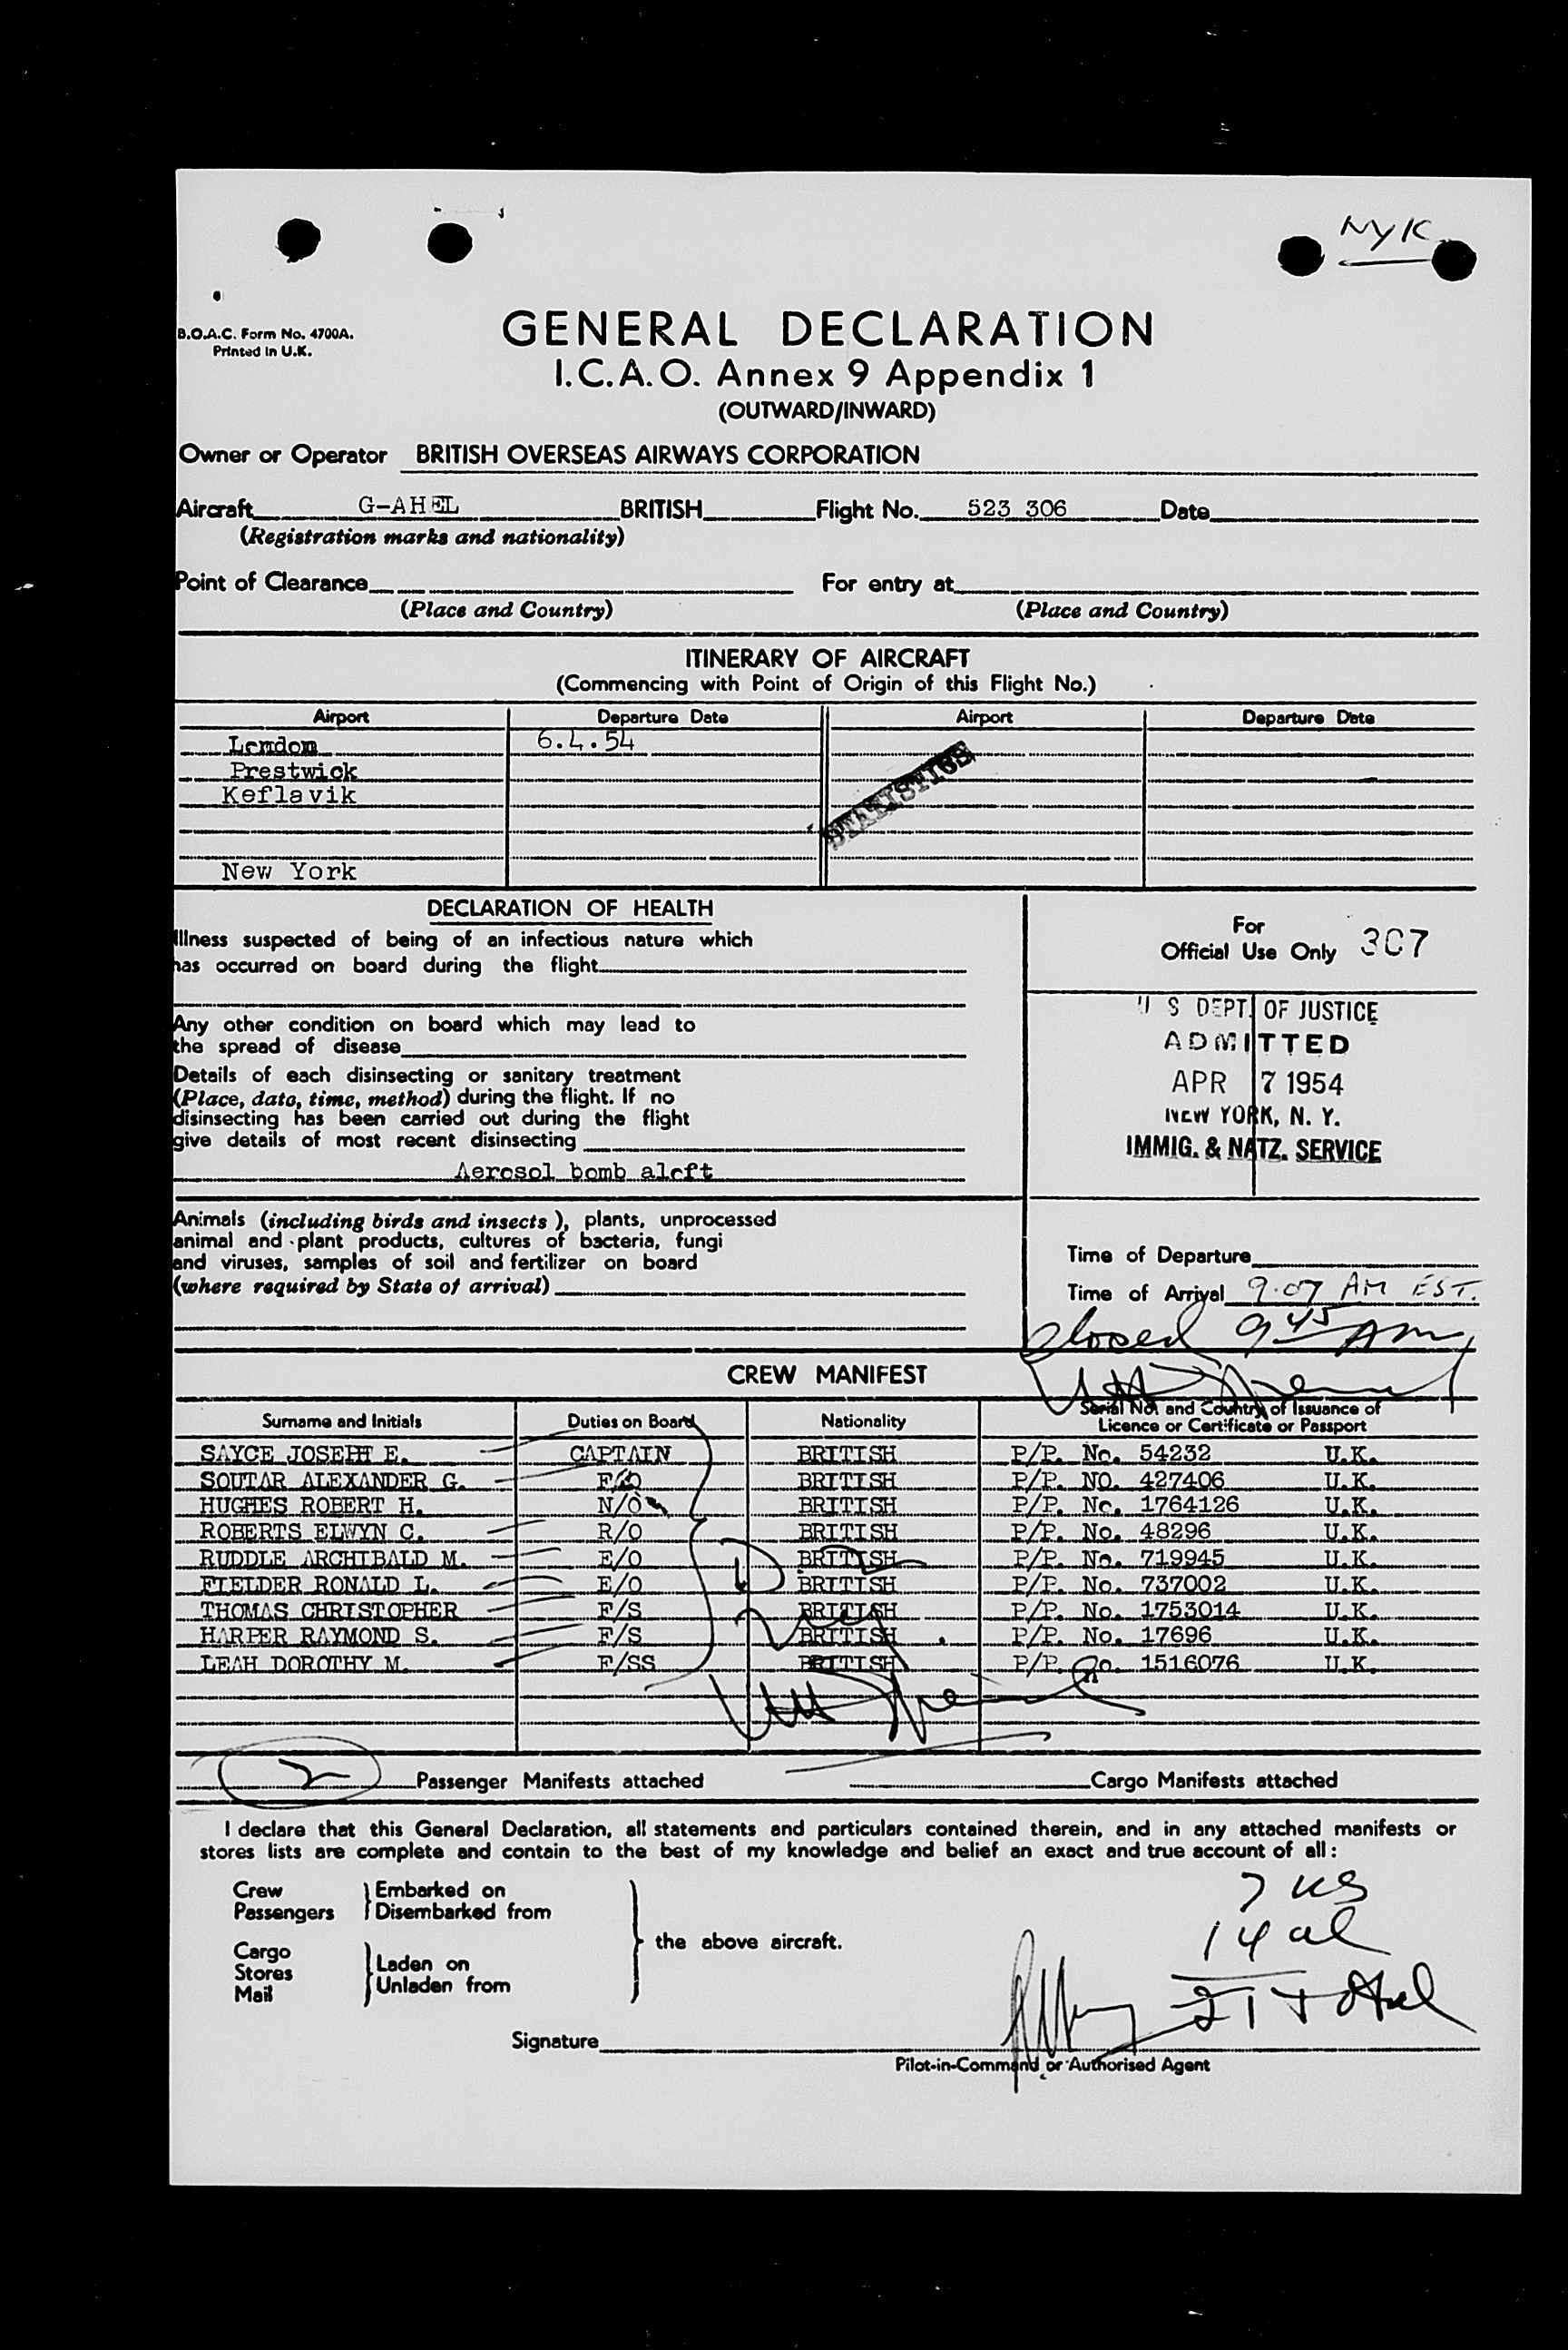 NYK
B.O.A.C. Form No. 4700A.
Printed in U.K.
GENERAL DECLARATION
I.C.A.O. Annex 9 Appendix 1
(OUTWARD/INWARD)
Owner or Operator BRITISH OVERSEAS AIRWAYS CORPORATION
Aircraft G-AHEL BRITISH Flight No. 523 306 Date
(Registration marks and nationality)
Point of Clearance For entry at
(Place and Country) (Place and Country)
ITINERARY OF AIRCRAFT
(Commencing with Point of Origin of this Flight No.)
Airport Departure Date Airport Departure Date
London 6.4.54
Prestwick
Keflavik
STATISTICS
New York
DECLARATION OF HEALTH
Illness suspected of being of an infectious nature which
has occurred on board during the flight
Any other condition on board which may lead to
the spread of disease
Details of each disinsecting or sanitary treatment
(Place, date, time, method) during the flight. If no
disinsecting has been carried out during the flight
give details of most recent disinsecting
Aerosol bomb aloft
Animals (including birds and insects), plants, unprocessed
animal and plant products, cultures of bacteria, fungi
and viruses, samples of soil and fertilizer on board
(where required by State of arrival)
For
Official Use Only 307
U S DEPT. OF JUSTICE
ADMITTED
APR 7 1954
NEW YORK, N. Y.
IMMIG. & NATZ. SERVICE
Time of Departure
Time of Arrival 9.07 AM EST.
closed 9 45 AM
CREW MANIFEST
Surname and Initials Duties on Board Nationality Serial No. and Country of Issuance of
Licence or Certificate or Passport
SAYCE JOSEPH E. CAPTAIN BRITISH P/P. No. 54232 U.K.
SOUTAR ALEXANDER G. F/O BRITISH P/P. NO. 427406 U.K.
HUGHES ROBERT H. N/O BRITISH P/P. No. 1764126 U.K.
ROBERTS ELWYN C. R/O BRITISH P/P. No. 48296 U.K.
RUDDLE ARCHIBALD M. E/O BRITISH P/P. No. 719945 U.K.
FIELDER RONALD L. E/O BRITISH P/P. No. 737002 U.K.
THOMAS CHRISTOPHER F/S BRITISH P/P. No. 1753014 U.K.
HARPER RAYMOND S. F/S BRITISH P/P. No. 17696 U.K.
LEAH DOROTHY M. F/SS BRITISH P/P. No. 1516076 U.K.
2 Passenger Manifests attached Cargo Manifests attached
I declare that this General Declaration, all statements and particulars contained therein, and in any attached manifests or
stores lists are complete and contain to the best of my knowledge and belief an exact and true account of all:
Crew
Passengers
Embarked on
Disembarked from
Cargo
Stores
Mail
Laden on
Unladen from
the above aircraft.
7 us
14 al
21 total
Signature
Pilot-in-Command or Authorised Agent